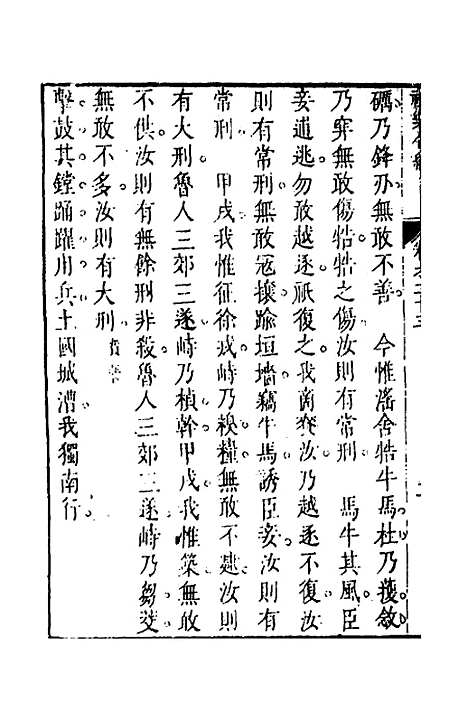 礪乃鋒刃無敢不善　今惟淫舍牿牛馬杜乃擭敜
乃穽無敢傷牿牿之傷汝則有常刑　馬牛其風臣
妾逋逃勿敢越逐祇復之我啇賚汝乃越逐不復汝
則有常刑無敢寇攘踰垣墻竊牛馬誘臣妾汝則有
常刑　甲戌我惟征徐戎峙乃糗糧無敢不逮汝則
有大刑魯人三郊三遂峙乃楨幹甲戌我惟築無敢
不供汝則有無餘刑非殺魯人三郊三遂峙乃芻茭
無敢不多汝則有大刑 費誓
擊鼓其鏜踊躍用兵土國城漕我獨南行